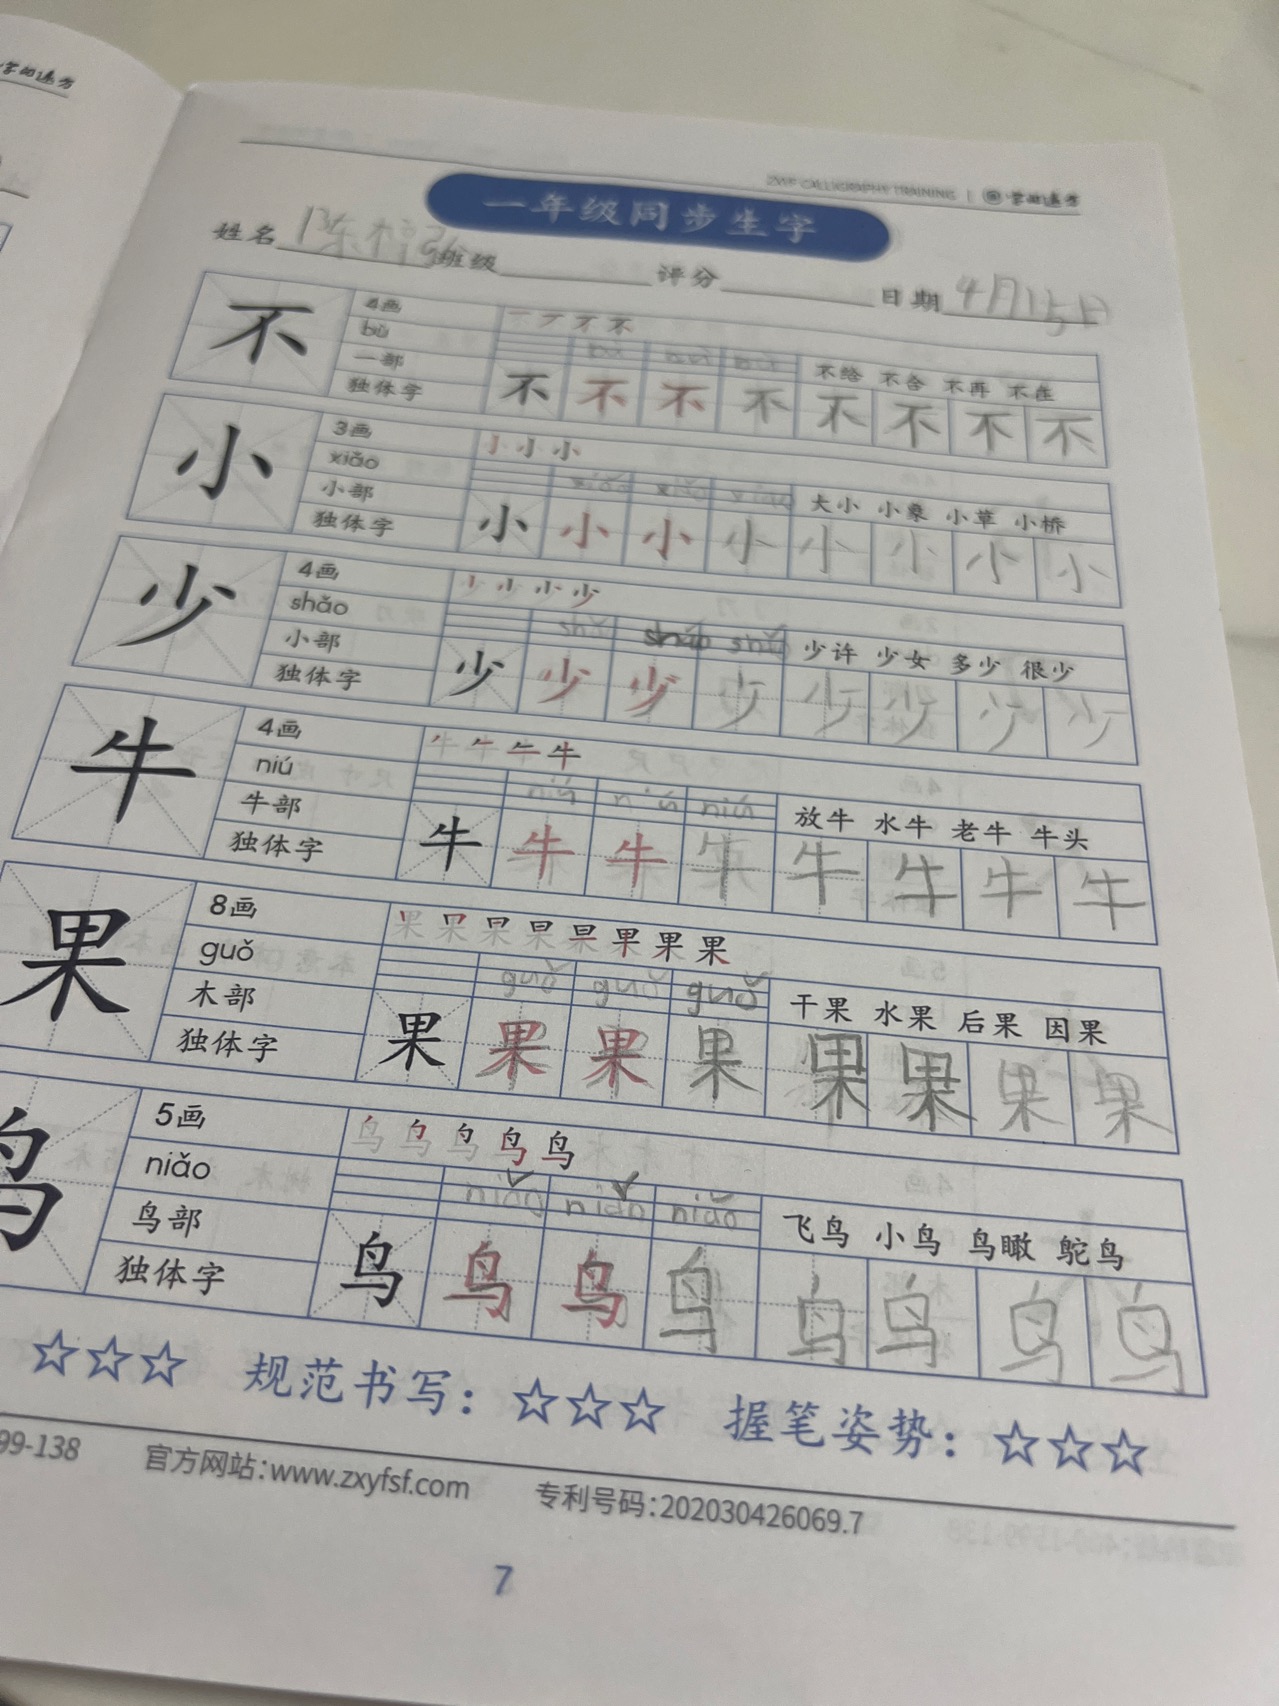 学的遠方
ZXYF CALLIGRAPHY TRAINING | 学的遠方
一年级同步生字
姓名 陈 班级 评分 日期 4月15日
不 4画
bù
一部
独体字
不
不给 不合 不再 不在
不 不 不 不 不 不 不 不
小 3画
xiǎo
小部
独体字
小 小 小
xiǎo xiǎo xiǎo 大小 小桑 小草 小桥
小 小 小 小 小 小 小 小
少 4画
shǎo
小部
独体字
少
shǎo shǎo shǎo 少许 少女 多少 很少
少 少 少 少 少 少 少 少
牛 4画
niú
牛部
独体字
牛
niú niú niú 放牛 水牛 老牛 牛头
牛 牛 牛 牛 牛 牛 牛 牛
果 8画
guǒ
木部
独体字
果
guǒ guǒ guǒ 干果 水果 后果 因果
果 果 果 果 果 果 果 果
鸟 5画
niǎo
鸟部
独体字
鸟 鸟 鸟 鸟 鸟
niǎo niǎo niǎo 飞鸟 小鸟 鸟瞰 鸵鸟
鸟 鸟 鸟 鸟 鸟 鸟 鸟 鸟
☆☆☆ 规范书写：☆☆☆ 握笔姿势：☆☆☆
99-138 官方网站：www.zxyfsf.com 专利号码：202030426069.7
7